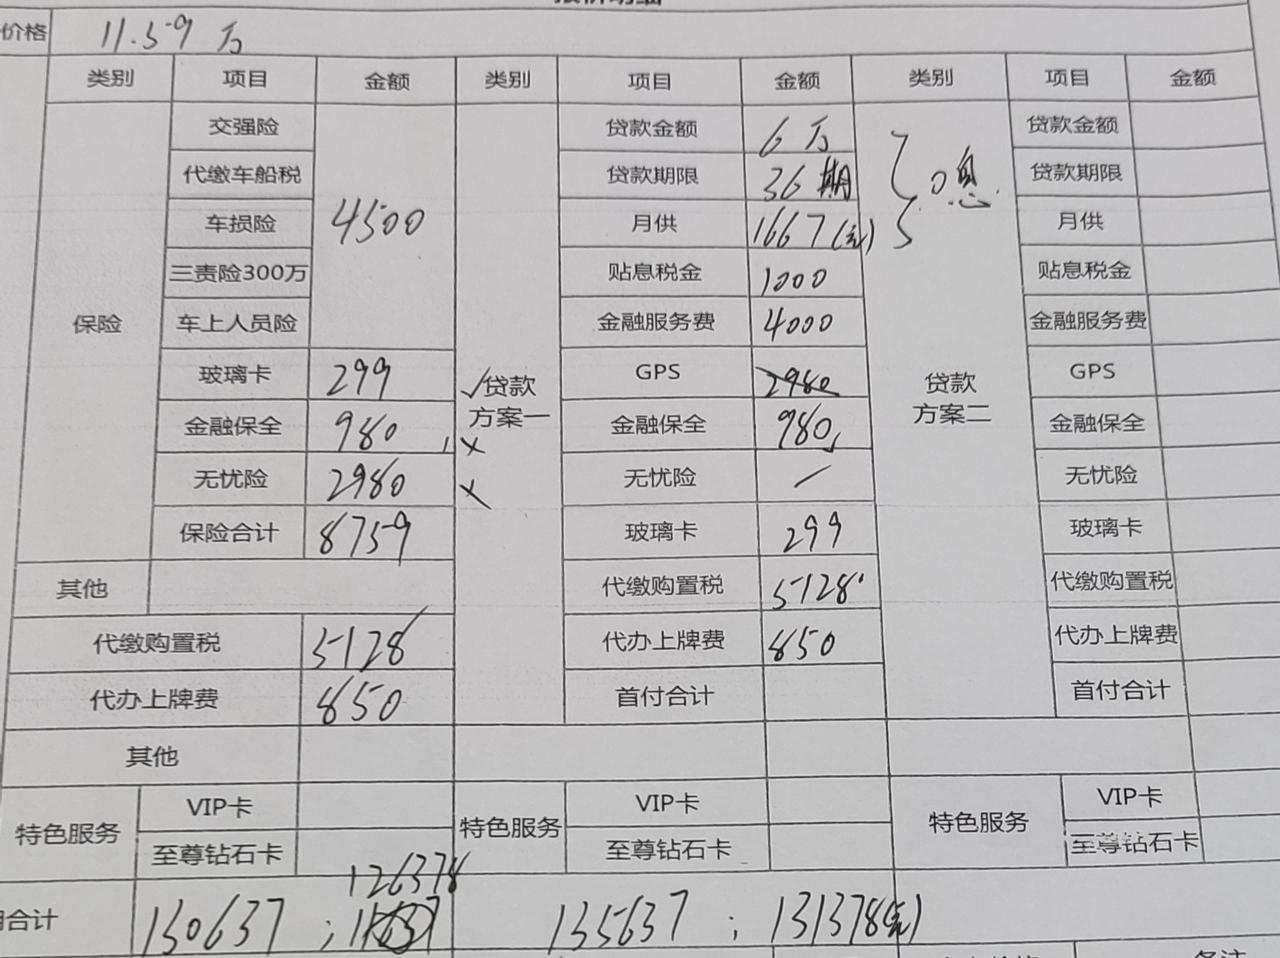 价格 11.59 万
类别 项目 金额 类别 项目 金额 类别 项目 金额
交强险 贷款金额 6万 贷款金额
代缴车船税 贷款期限 36期 0息 贷款期限
车损险 4500 月供 1667(元) 月供
三责险300万 贴息税金 1000 贴息税金
保险 车上人员险 金融服务费 4000 金融服务费
玻璃卡 299 √贷款 GPS 2980 贷款 GPS
金融保全 980 × 方案一 金融保全 980 方案二 金融保全
无忧险 2980 × 无忧险 / 无忧险
保险合计 8759 玻璃卡 299 玻璃卡
其他 代缴购置税 5128 代缴购置税
代缴购置税 5128 代办上牌费 850 代办上牌费
代办上牌费 850 首付合计 首付合计
其他
特色服务 VIP卡 特色服务 VIP卡 特色服务 VIP卡
至尊钻石卡 至尊钻石卡 至尊钻石卡
126378
合计 130637 ; 135637 ; 131378(元)
备注